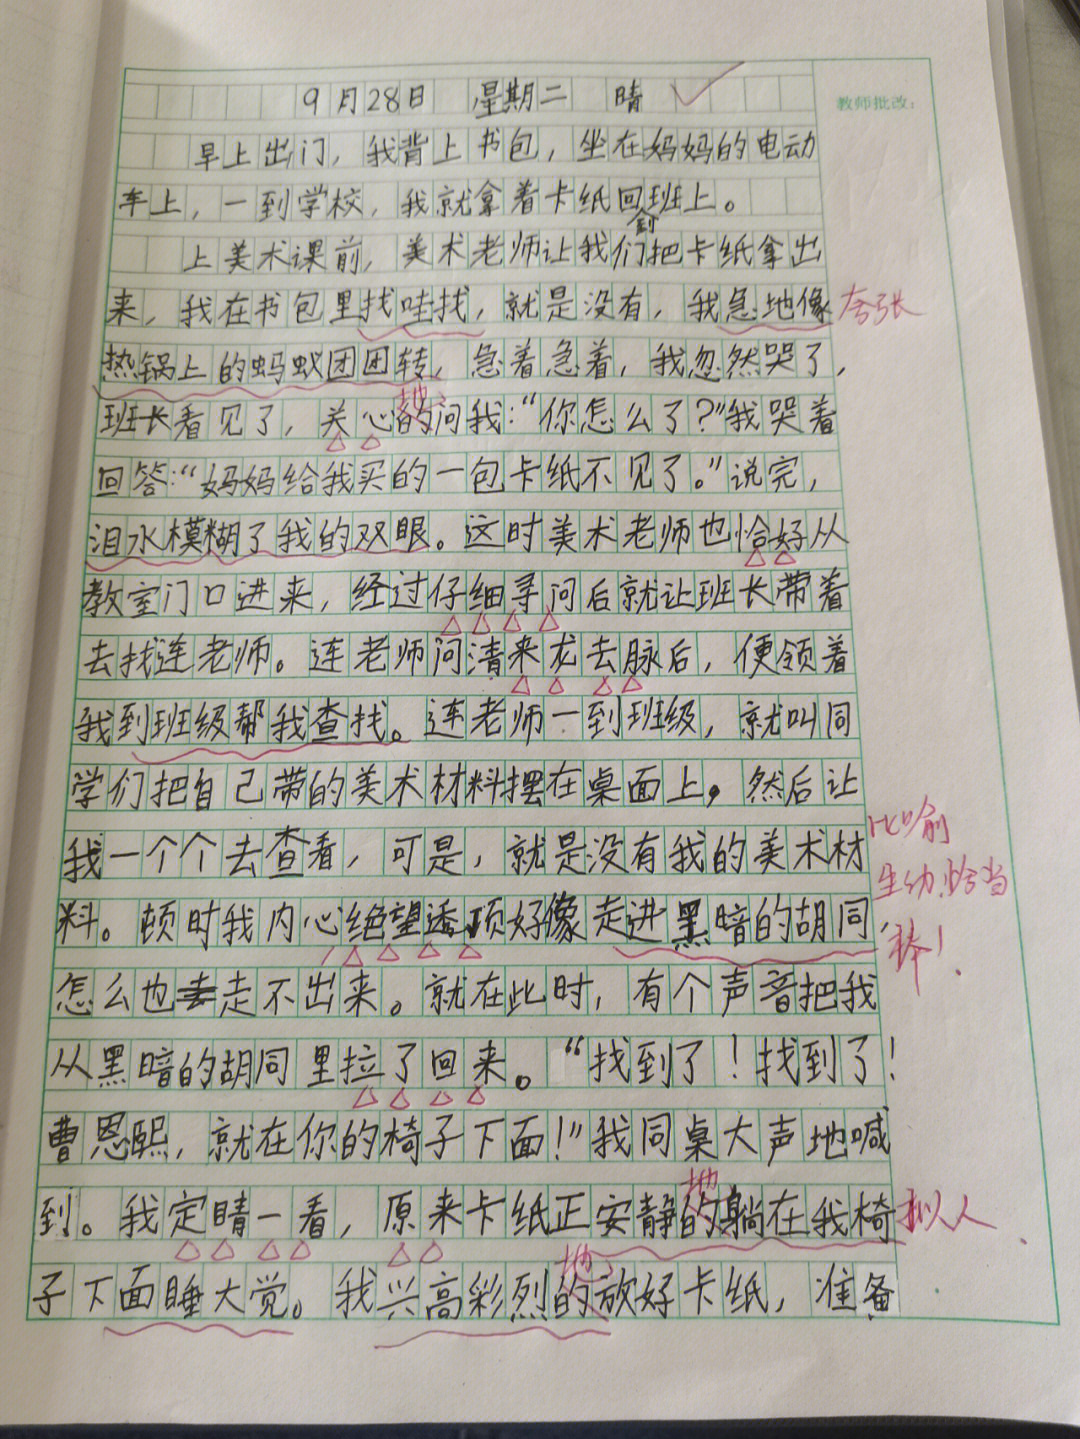 9月28日 星期二 晴
教师批改：
早上出门，我背上书包，坐在妈妈的电动
车上，一到学校，我就拿着卡纸回到班上。
上美术课前，美术老师让我们把卡纸拿出
来，我在书包里找哇找，就是没有，我急地像
夸张
热锅上的蚂蚁团团转，急着急着，我忽然哭了，
班长看见了，关心的问我：“你怎么了？”我哭着
地
回答：“妈妈给我买的一包卡纸不见了。”说完，
泪水模糊了我的双眼。这时美术老师也恰好从
教室门口进来，经过仔细寻问后就让班长带着
去找连老师。连老师问清来龙去脉后，便领着
我到班级帮我查找。连老师一到班级，就叫同
学们把自己带的美术材料摆在桌面上，然后让
我一个个去查看，可是，就是没有我的美术材
比喻
生动恰当
棒！
料。顿时我内心绝望透顶好像走进黑暗的胡同，
怎么也走不出来。就在此时，有个声音把我
从黑暗的胡同里拉了回来。“找到了！找到了！
曹恩熙，就在你的椅子下面！”我同桌大声地喊
到。我定睛一看，原来卡纸正安静的躺在我椅
地
拟人
子下面睡大觉。我兴高彩烈的放好卡纸，准备
地